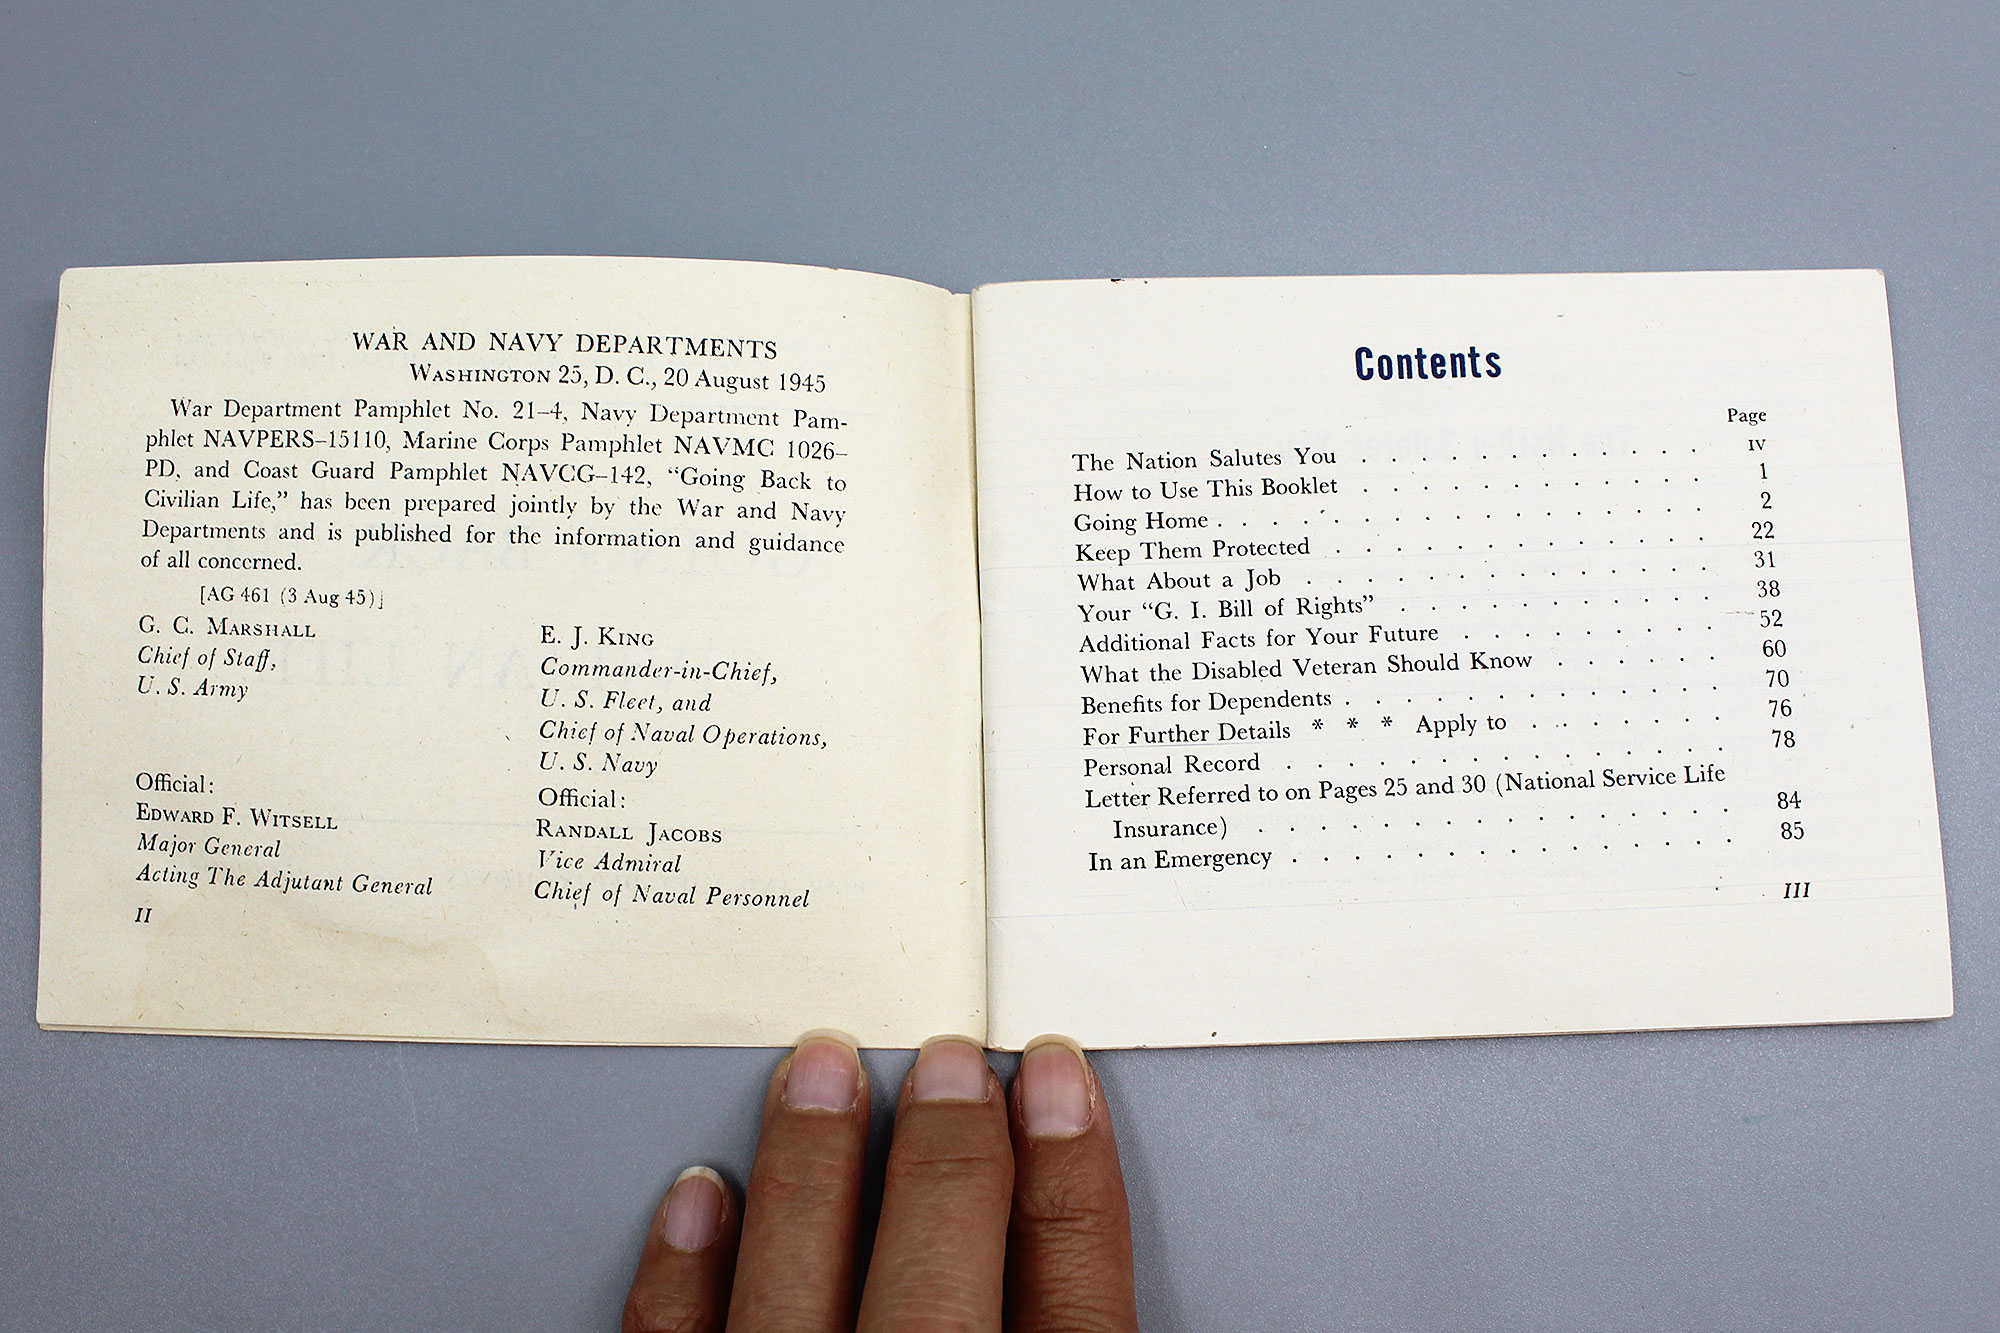 WAR AND NAVY DEPARTMENTS
WASHINGTON 25, D. C., 20 August 1945
War Department Pamphlet No. 21–4, Navy Department Pam-
phlet NAVPERS–15110, Marine Corps Pamphlet NAVMC 1026–
PD, and Coast Guard Pamphlet NAVCG–142, “Going Back to
Civilian Life,” has been prepared jointly by the War and Navy
Departments and is published for the information and guidance
of all concerned.
[AG 461 (3 Aug 45)]
G. C. MARSHALL
Chief of Staff,
U. S. Army
Official:
EDWARD F. WITSELL
Major General
Acting The Adjutant General
E. J. KING
Commander-in-Chief,
U. S. Fleet, and
Chief of Naval Operations,
U. S. Navy
Official:
RANDALL JACOBS
Vice Admiral
Chief of Naval Personnel
II
Contents
Page
The Nation Salutes You . . . . . . . . . . . . IV
How to Use This Booklet . . . . . . . . . . . . 1
Going Home . . . . . . . . . . . . . . . . 2
Keep Them Protected . . . . . . . . . . . . . 22
What About a Job . . . . . . . . . . . . . . 31
Your “G. I. Bill of Rights” . . . . . . . . . . . 38
Additional Facts for Your Future . . . . . . . . . 52
What the Disabled Veteran Should Know . . . . . . 60
Benefits for Dependents . . . . . . . . . . . . . 70
For Further Details * * * Apply to . . . . . . . 76
Personal Record . . . . . . . . . . . . . . 78
Letter Referred to on Pages 25 and 30 (National Service Life
Insurance) . . . . . . . . . . . . . . . . 84
In an Emergency . . . . . . . . . . . . . . . 85
III